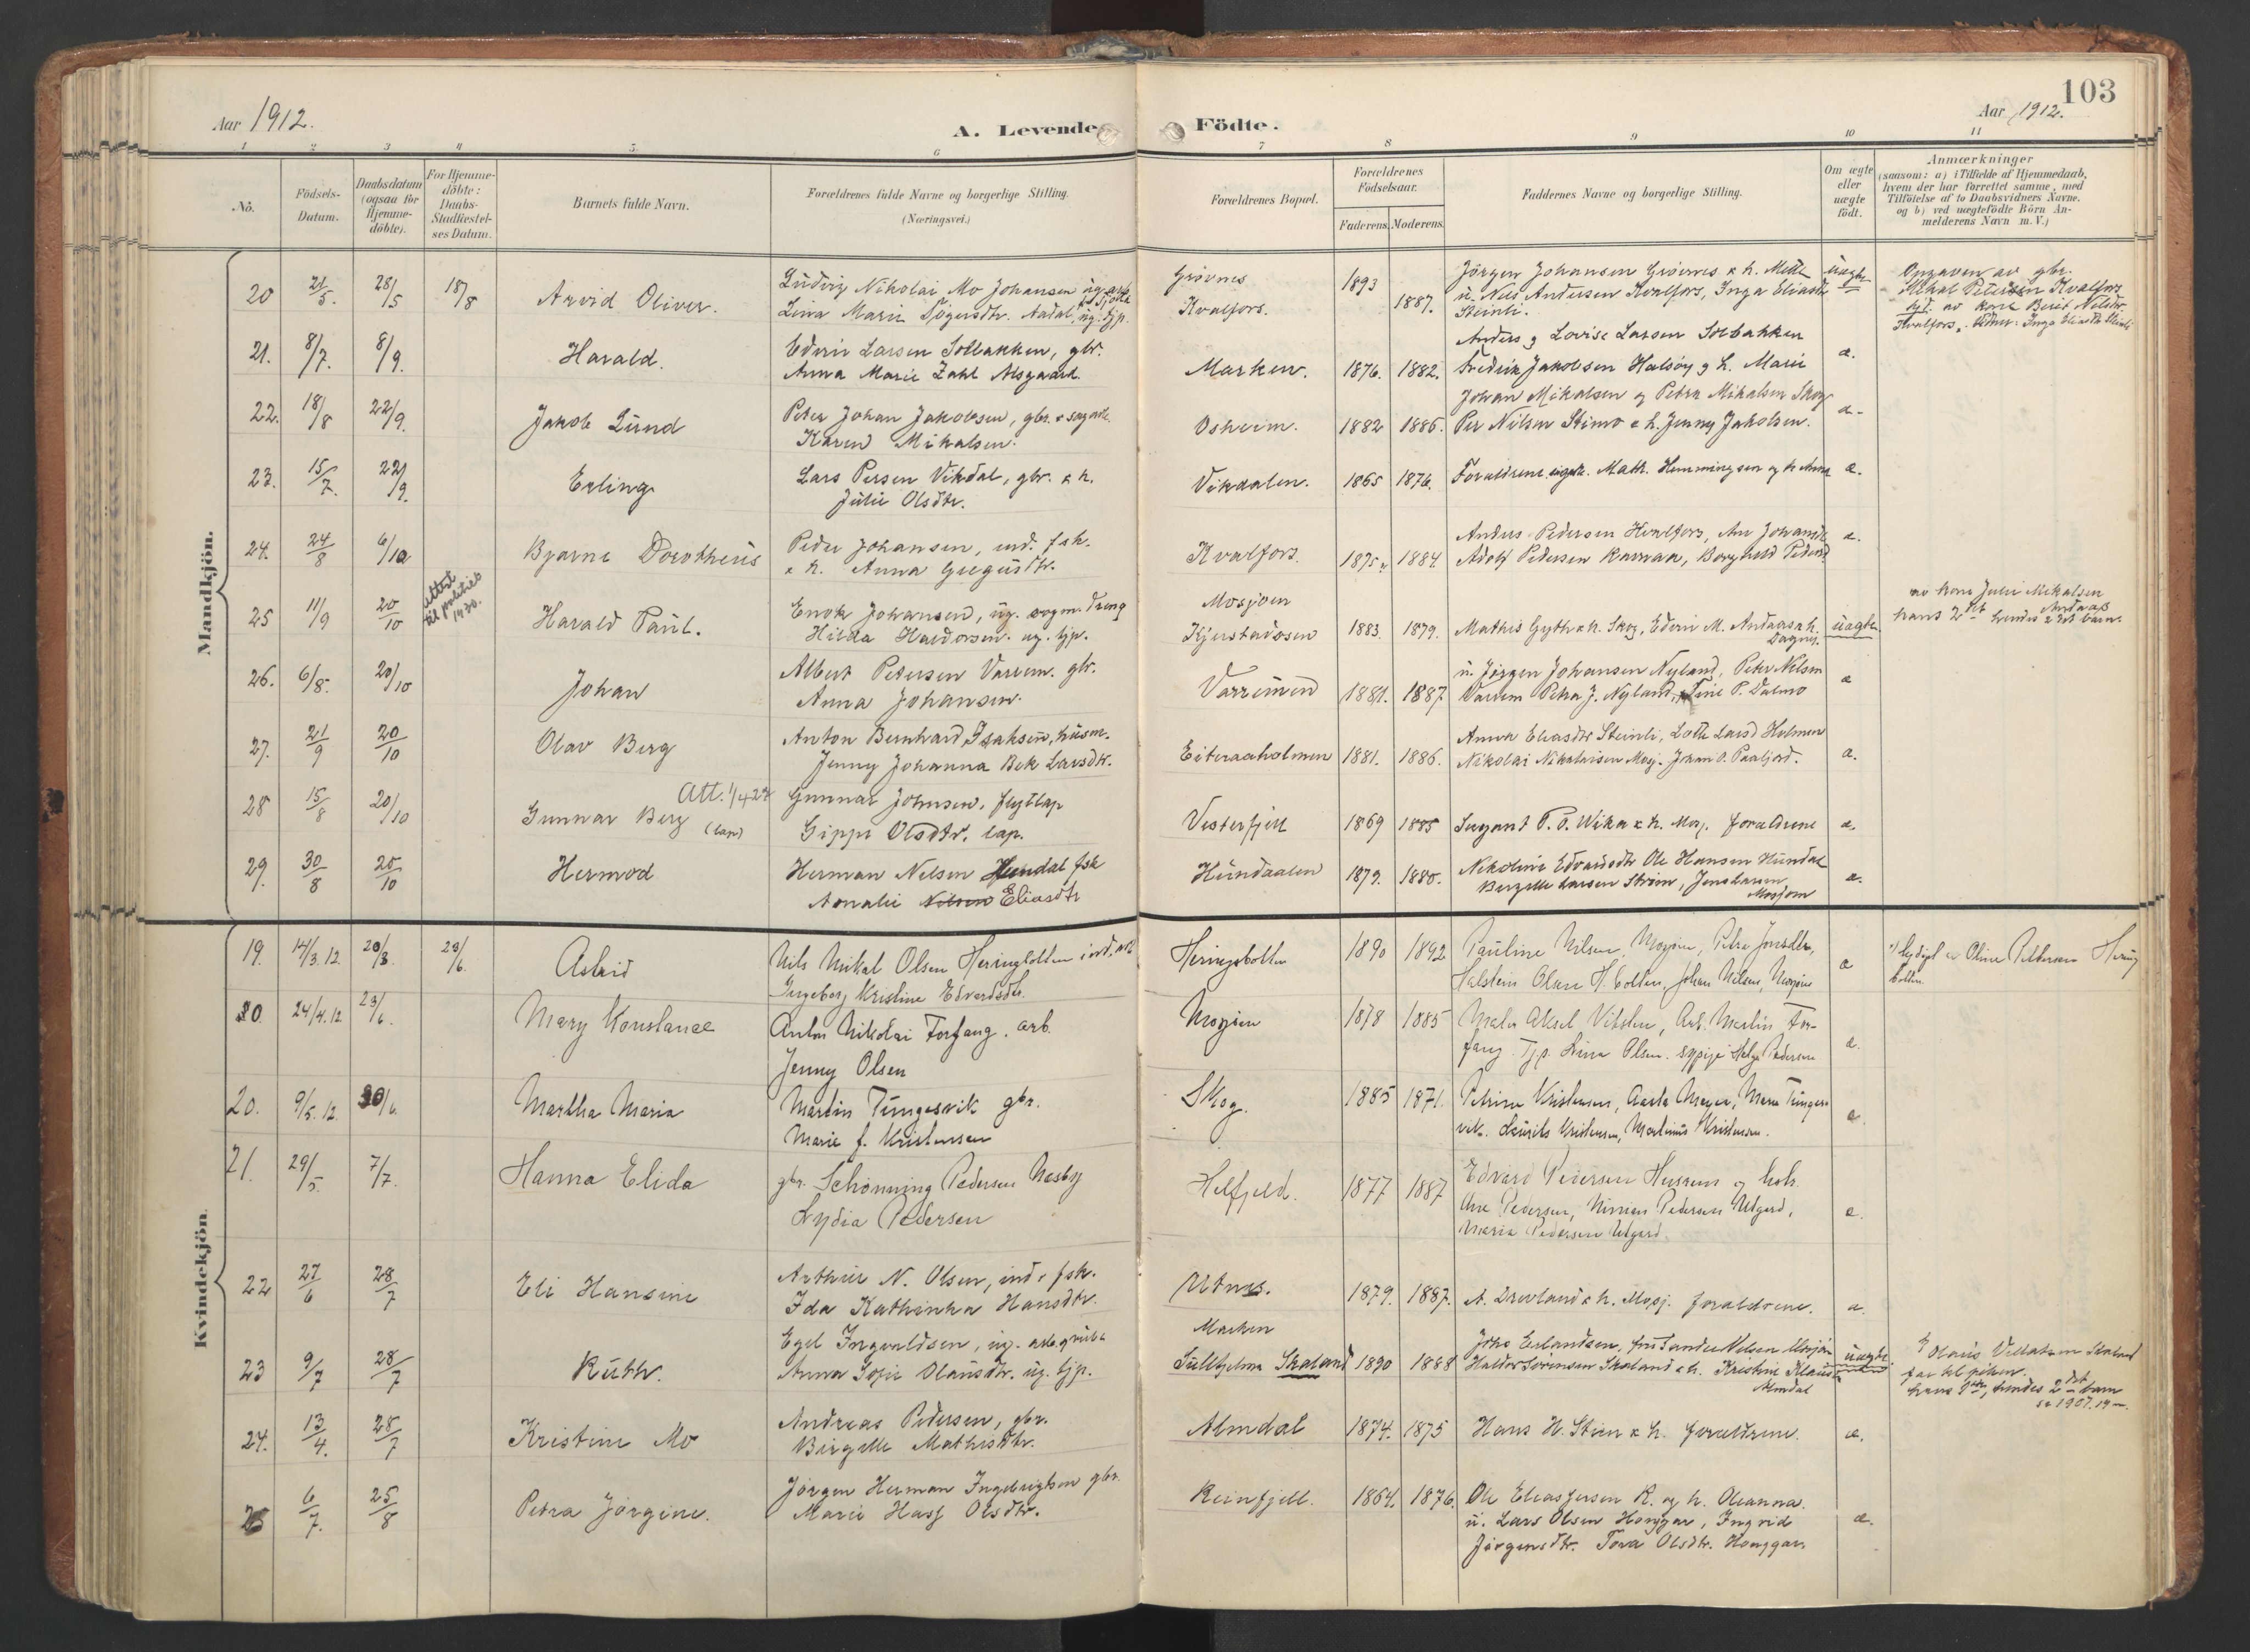 103
Aar 1912.
A. Levende Födte.
Aar 1912.
1 2 3 4 5. 6 7 8 9 10 11
No. Födsels-Datum. Daabsdatum (ogsaa for Hjemme-döbte). For Hjemme-döbte: Daabs-Stadfæstel-ses Datum. Barnets fulde Navn. Forældrenes fulde Navne og borgerlige Stilling. (Næringsvei.) Forældrenes Bopæl. Forældrenes Födselsaar. Faderens. Moderens. Faddernes Navne og borgerlige Stilling. Om ægte eller uægte födt. Anmærkninger (saasom: a) i Tilfælde af Hjemmedaab, hvem der har forrettet samme, med Tilföielse af to Daabsvidners Navne. og b) ved uægtefödte Börn An-melderens Navn m. V.)
Mandkjön.
20 21/5. 28/5 18/8 Arvid Oliver. Ludvig Nikolai Mo Johansen ug.
Lina Marie Aadal, ug. tjp.
Grovnes
Kvalfors. 1893 1887. Jörgen Johansen & h. Mette
u. Nils Andersen Kvalfors, Inga Eliasdtr
Steinli. uægte
av gbr.
Mikal Petersen Kvalfors
av kone Berit Nilsdtr.
Kvalfors. Inga Eliasdtr Steinli
21. 8/7. 8/9. Harald. Edvin Larsen Solbakken, gbr.
Anna Marie Zahl Alsgaard.
Marken. 1876. 1882. Anders & Lovise Larsen Solbakken
Fredrik Jakobsen Halsöy & h. Marie æ.
22. 18/8 22/9. Jakob Lund Peter Johan Jakobsen, gbr. &
Karen Mikalsen.
Osheim. 1882 1886. Johan Mikalsen og Petra Mikalsen Skog
Per Nilsen Stimo & h. Jenny Jakobsen. æ.
23. 15/7. 22/9. Erling Lars Persen Vikdal, gbr. & h.
Julie Olsdtr.
Vikdalen. 1865 1876. Forældrene. Math. Hemmingsen og h. Anna æ.
24. 24/8 6/10 Bjarne Dorotheus Peder Johansen, ind. fsk.
& h. Anna Gregusdtr.
Kvalfors. 1875. 1884. Anders Pedersen Kvalfors, Ane Johansdtr
Adolf Pedersen Ramnaa, Borghild Pedersd. æ.
25 11/9 20/10 attest til politiet 1930. Harald Paul. Enok Johansen, ug. dreng
Hilda Haldorsen. ug. tjp.
Mosjøen
Kjerstadosen 1883. 1879. Mathis Gyth & h. Skog, Edvin M. Andaas & h.
Dagny. uægte.
av kone Julie Mikalsen
Andaas
hans 2det hendes 2det barn.
26. 6/8. 20/10 Johan Albert Petersen Varrem. gbr.
Anna Johansen.
Varremen 1881. 1887 u. Jørgen Johansen Nyland, Peter Nilsen
Varrem Petra J. Nyland, Tine P. Dalmo æ
27. 21/9 20/10 Olav Berg Anton Bernhard Isaksen, husm.
Jenny Johanna Bek Larsdtr.
Eiteraaholmen 1881. 1886. Anna Eliasdtr Steinli, Lotte Larsd Holmen
Nikolai Nikolaisen Mosj. Johan O. Paaljord. æ.
28 15/8 20/10 Att. 1/4 27 Gunnar Berg (lap) Gunnar Johnsen, flytlap
Sippe Olsdtr. lap.
Vesterfjell 1869 1885 Sergeant P. O. Wika & h. Mosj. forældrene æ.
29. 30/8 20/10 Hermod Herman Nelsen Hundal fsk
Amalie Nilsen Eliasdtr
Hundaalen 1879. 1880. Nikoline Edvardsdtr Ole Hansen Hundal
Bergitte Larsen Strøm, Jens Larsen
Mosjøen æ.
Kvindekjön.
19. 14/3.12. 20/3. 23/6. Astrid Nils Mikal Olsen Heringbotten ind.
Ingeborg Kristine Edvardsdtr.
Heringbotten 1890 1892 Pauline Nilsen, Mosjøen, Petra Jonsdtr,
Halstein Olsen H.botten, Johan Nilsen, Mosjøen æ
av Oline Pettersen Hering
botten.
20. 24/4.12 23/6. Mary Konstanse Anton Nikolai Forfang. arb.
Jenny Olsen
Mosjøen 1878 1885 Maler Aksel Vibstun, Arb. Martin For-
fang Tjp. Lina Olsen. sypige Helga Pedersen æ.
20. 9/5.12. 30/6. Martha Maria Martin Tungesvik gbr.
Marie f. Kristensen
Skog. 1885 1871. Petrine Kristensen, Aasta Meyer, Maria Tunges-
vik. Laurits Kristensen, Martinus Kristensen. æ
21. 29/5. 7/7. Hanna Elida gbr. Schønning Pedersen Nesby
Lydia Pedersen
Helfjeld. 1877 1887 Edvard Pedersen og
Ane Pedersen, Pedersen Utgard,
Maria Pedersen Utgard. æ.
22 27/6 28/7 Eli Hansine Arthur N. Olsen, ind. fsk.
Ida Kathinka Hansdtr.
Utnes. 1879. 1887. A. Drevland & h. Mosj. forældrene. æ.
23 9/7 28/7 Ruth. Egil Ingvaldsen, ug.
Anna Sofie Olausdtr. ug. tjp.
Marken
Sulitjelma Skaland 1890 1888 Erlandsen, Nilsen Mosjøen
Haldor Sörensen Skaland & h. Kristine Klausd
Almdal uægte
Olaus Skaland
far til piken.
hans 1ste, hendes 2det barn
24. 13/4. 28/7 Kristine Mo Andreas Pedersen, gbr.
Birgitte Mathisdtr.
Almdal 1874. 1875 Hans H. Stien & h. forældrene. æ.
25 6/7. 25/8 Petra Jörgine. Jörgen Herman Ingebrigtsen gbr.
Marie Olsdtr.
Reinfjell. 1864. 1876. Ole Eliassen R. og h. Oleanna.
u. Lars Olsen Honggar, Ingrid
Jörgensdtr. Tora Olsdtr. Honggar. æ.